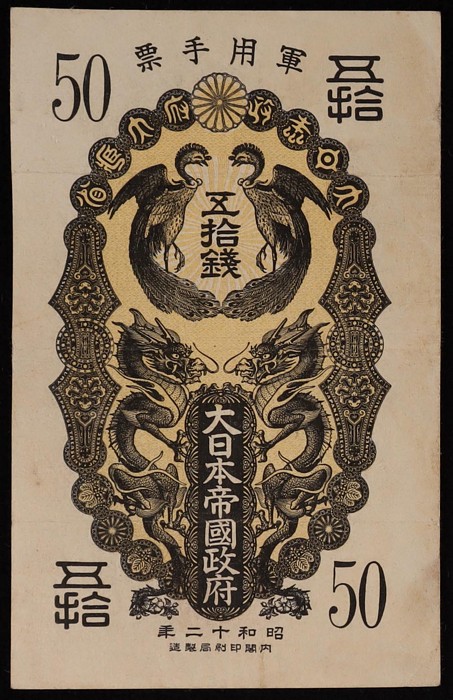 50
軍用手票
五拾
五拾錢
大日本帝國政府
五拾
50
昭和十二年
内閣印刷局製造